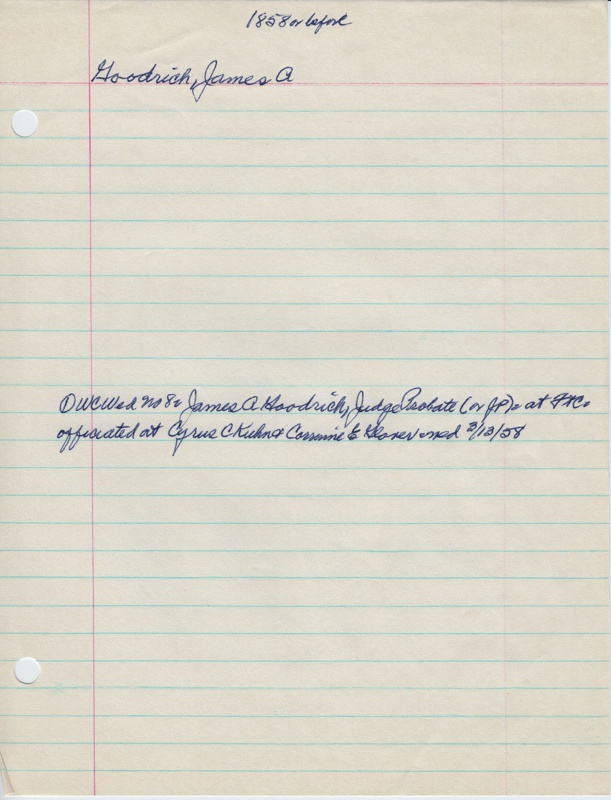 1858 or before
Goodrich, James A
DWCWed No 8 = James A Goodrich, Judge Probate (or JP) = at
officiated at Cyrus C Kuhn & Corrinne E Glover wed 3/13/58